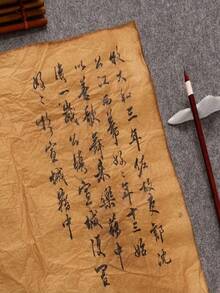 牧大和三年佐故吏部沈
公江西幕好々年十三始
以善歌舞来樂籍中
後一歲公鎮宣城復置
好々於宣城籍中